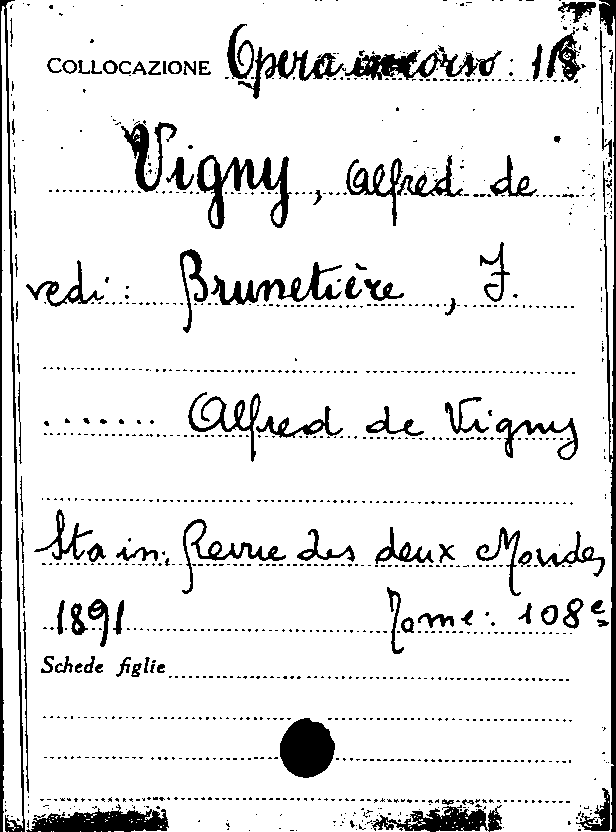 COLLOCAZIONE Opera in corso: 118
Vigny, Alfred de
vedi: Brunetière, F.
....... Alfred de Vigny
Sta in: Revue des deux Mondes
1891 Tome: 108e
Schede figlie